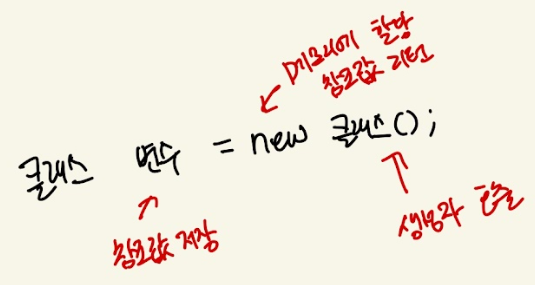 메모리에 할당
참조값 리턴
클래스 변수 = new 클래스();
참조값 저장
생성자 호출